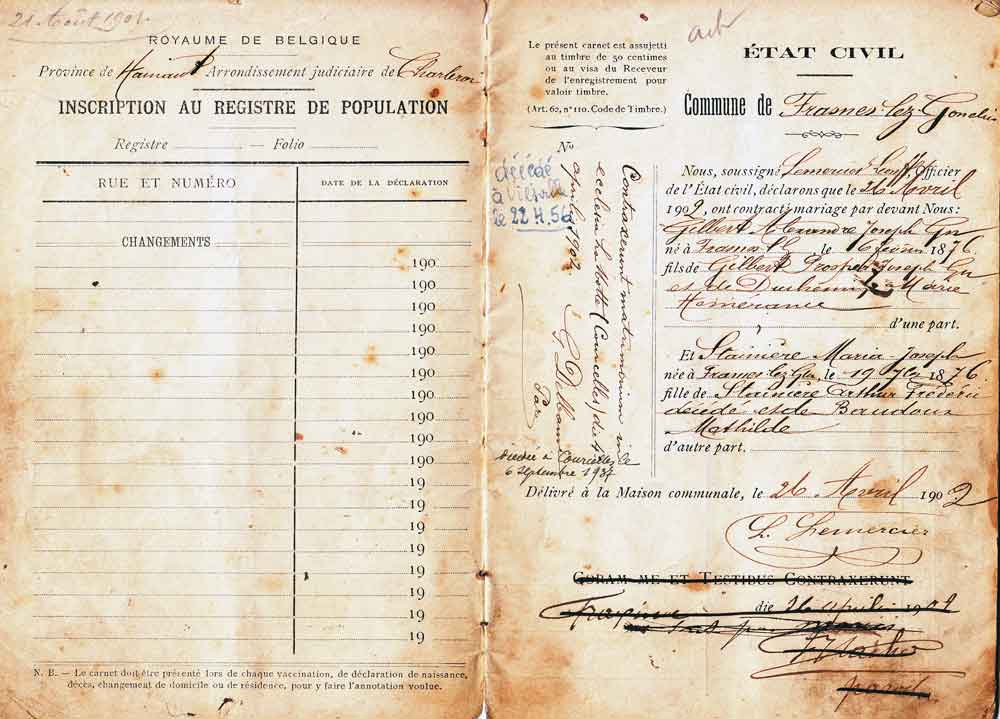 21 Août 190
ROYAUME DE BELGIQUE
Province de Hainaut Arrondissement judiciaire de Charleroi
INSCRIPTION AU REGISTRE DE POPULATION
Registre — Folio
RUE ET NUMÉRO
DATE DE LA DÉCLARATION
CHANGEMENTS
190
190
190
190
190
190
190
190
190
190
19
19
19
19
19
19
19
19
N. B. — Le carnet doit être présenté lors de chaque vaccination, de déclaration de naissance,
décès, changement de domicile ou de résidence, pour y faire l'annotation voulue.
Le présent carnet est assujetti
au timbre de 50 centimes
ou au visa du Receveur
de l'enregistrement pour
valoir timbre.
(Art. 62, n° 110. Code de Timbre.)
No
décédé
à
le 22 4. 56
Contraxerunt matrimonium in
ecclesia La Motte (Courcelles) die
aprilis 1902
décédée à Courcelles le
6 Septembre 1937
ÉTAT CIVIL
Commune de Frasnes lez Gosselies
Nous, soussigné Lemercier Officier
de l'État civil, déclarons que le 26 Avril
1902, ont contracté mariage par devant Nous :
Gilbert Alexandre Joseph
né à Frasnes , le 6 février 1876
fils de Gilbert Prosper Joseph
et de Marie
d'une part.
Et Stainière Maria Joseph
née à Frasnes lez , le 19 1876
fille de Stainière Arthur
et de Baudoux
Mathilde
d'autre part.
Délivré à la Maison communale, le 26 Avril 1902
L. Lemercier
CORAM ME ET TESTIBUS CONTRAXERUNT
die 26 aprilis 1902